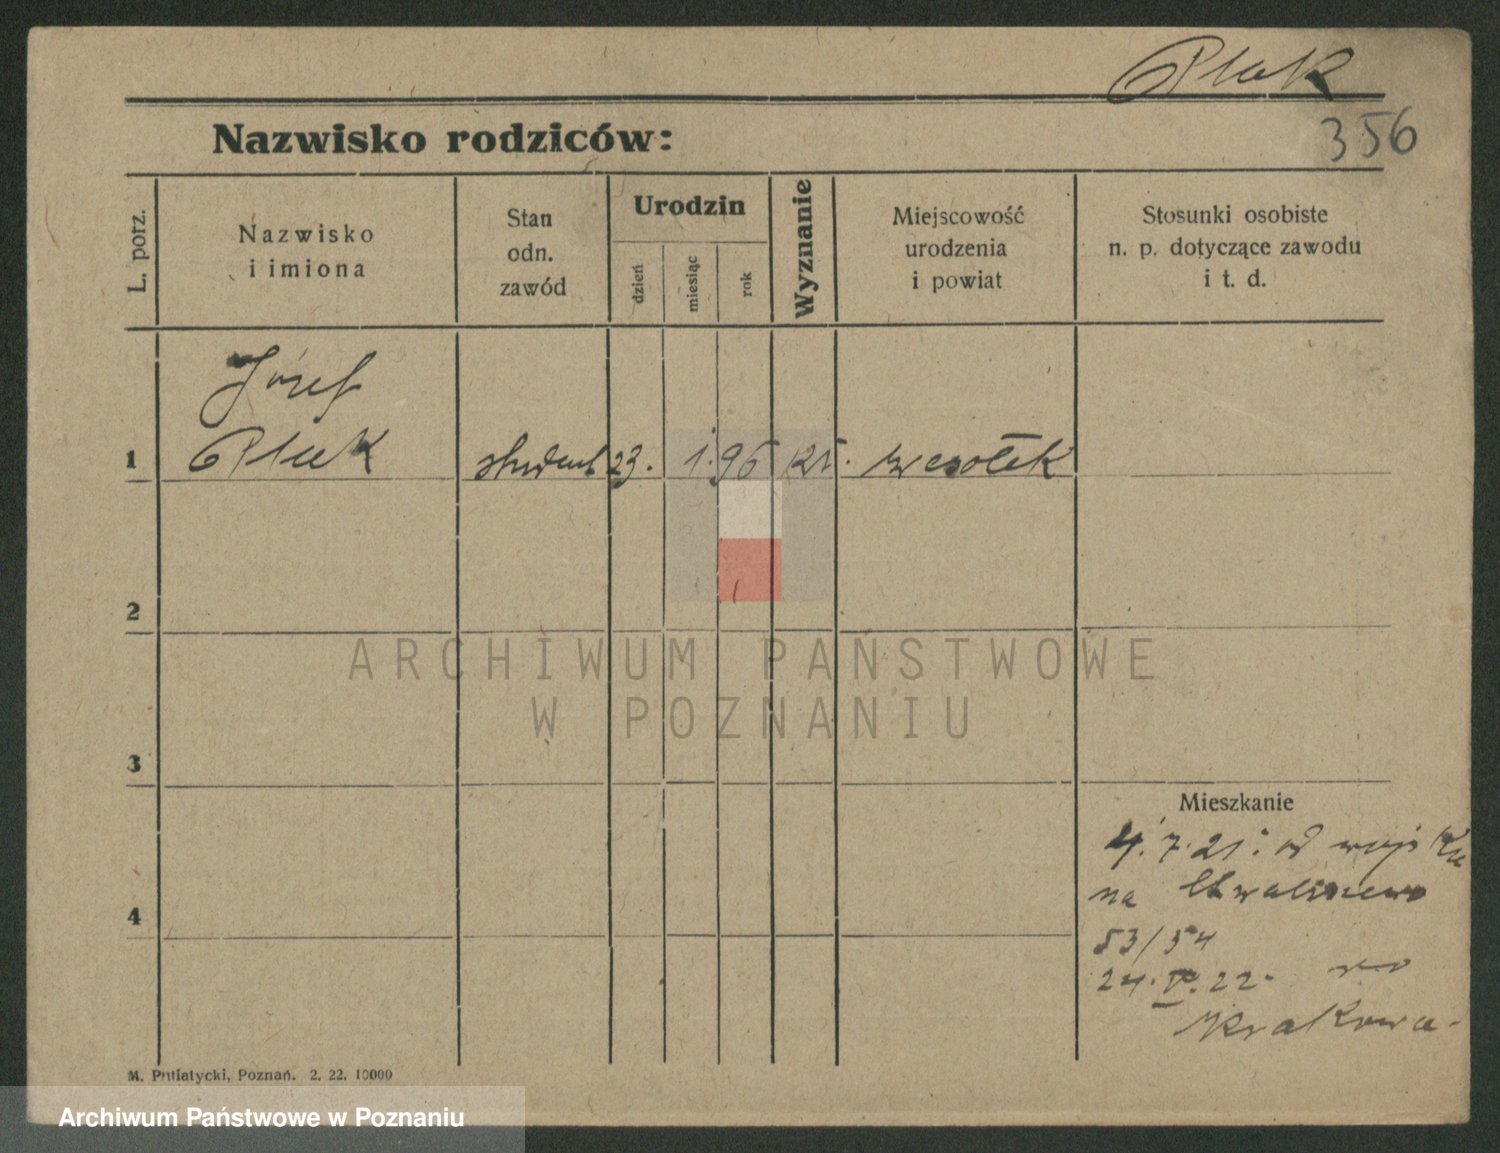 Ptak
356
Nazwisko rodziców:
L. porz.
Nazwisko
i imiona
Stan
odn.
zawód
Urodzin
dzień
miesiąc
rok
Wyznanie
Miejscowość
urodzenia
i powiat
Stosunki osobiste
n. p. dotyczące zawodu
i t. d.
Józef
1 Ptak student 23. 1. 96
2
ARCHIWUM PAŃSTWOWE
W POZNANIU
3
Mieszkanie
4. 7. 21. od wojska
na
4
53/54
24. V. 22. do
Krakowa.
M. Putiatycki, Poznań. 2. 22. 10000
Archiwum Państwowe w Poznaniu